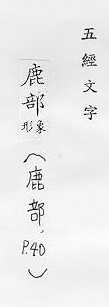 五經文字
鹿部
形象
(鹿部,
P.40)